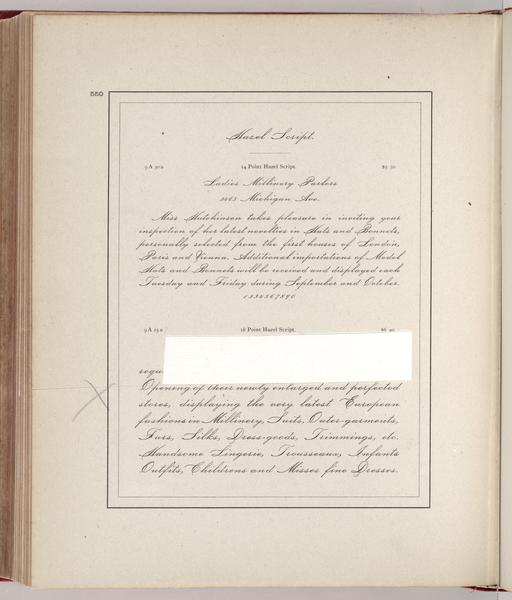 550
Hazel Script.
9 A 30 a 14 Point Hazel Script. $5 50
Ladies Millinery Parlors
Michigan Ave.
Miss Hutchinson takes pleasure in inviting your
inspection of her latest novelties in Hats and Bonnets,
personally selected from the first houses of London,
Paris and Vienna. Additional importations of Model
Hats and Bonnets will be received and displayed each
Tuesday and Friday during September and October.
1234567890
9 A 25 a 18 Point Hazel Script.
Opening of their newly enlarged and perfected
stores, displaying the very latest European
fashions in Millinery, Suits, Outer-garments,
Furs, Silks, Dress-goods, Trimmings, etc.
Handsome Lingerie, Trousseaux, Infants
Outfits, Childrens and Misses fine Dresses.